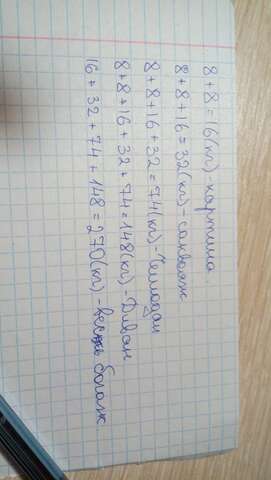 8+8=16(кг) картина
8+8+16=32(кг)-саквояж
8+8+16+32=74(кг)-Чемодан
8+8+16+32+74=148(кг)-Диван
16+32+74+148=270(кг)-весь багаж